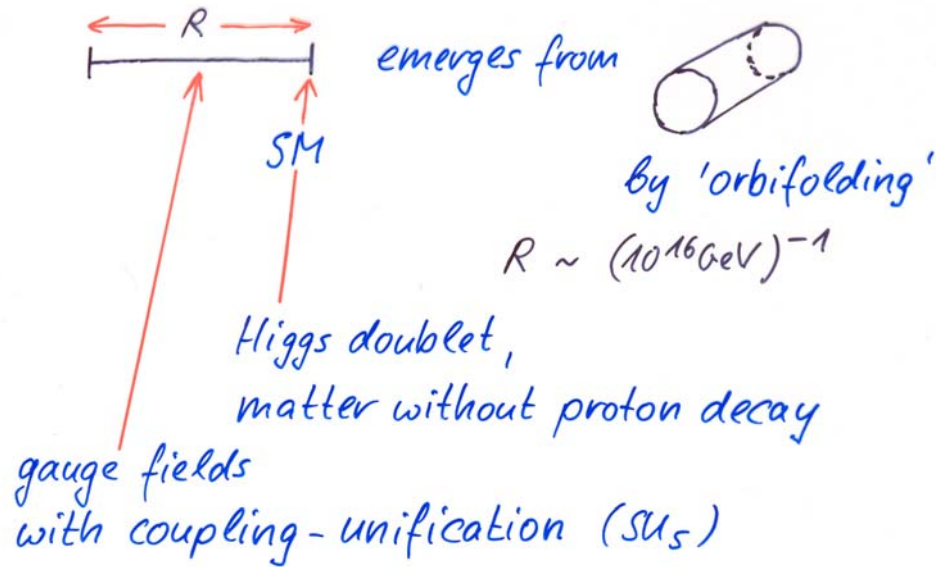 R
emerges from
SM
by 'orbifolding'
R ~ (10¹⁶GeV)⁻¹
Higgs doublet,
matter without proton decay
gauge fields
with coupling-unification (SU₅)